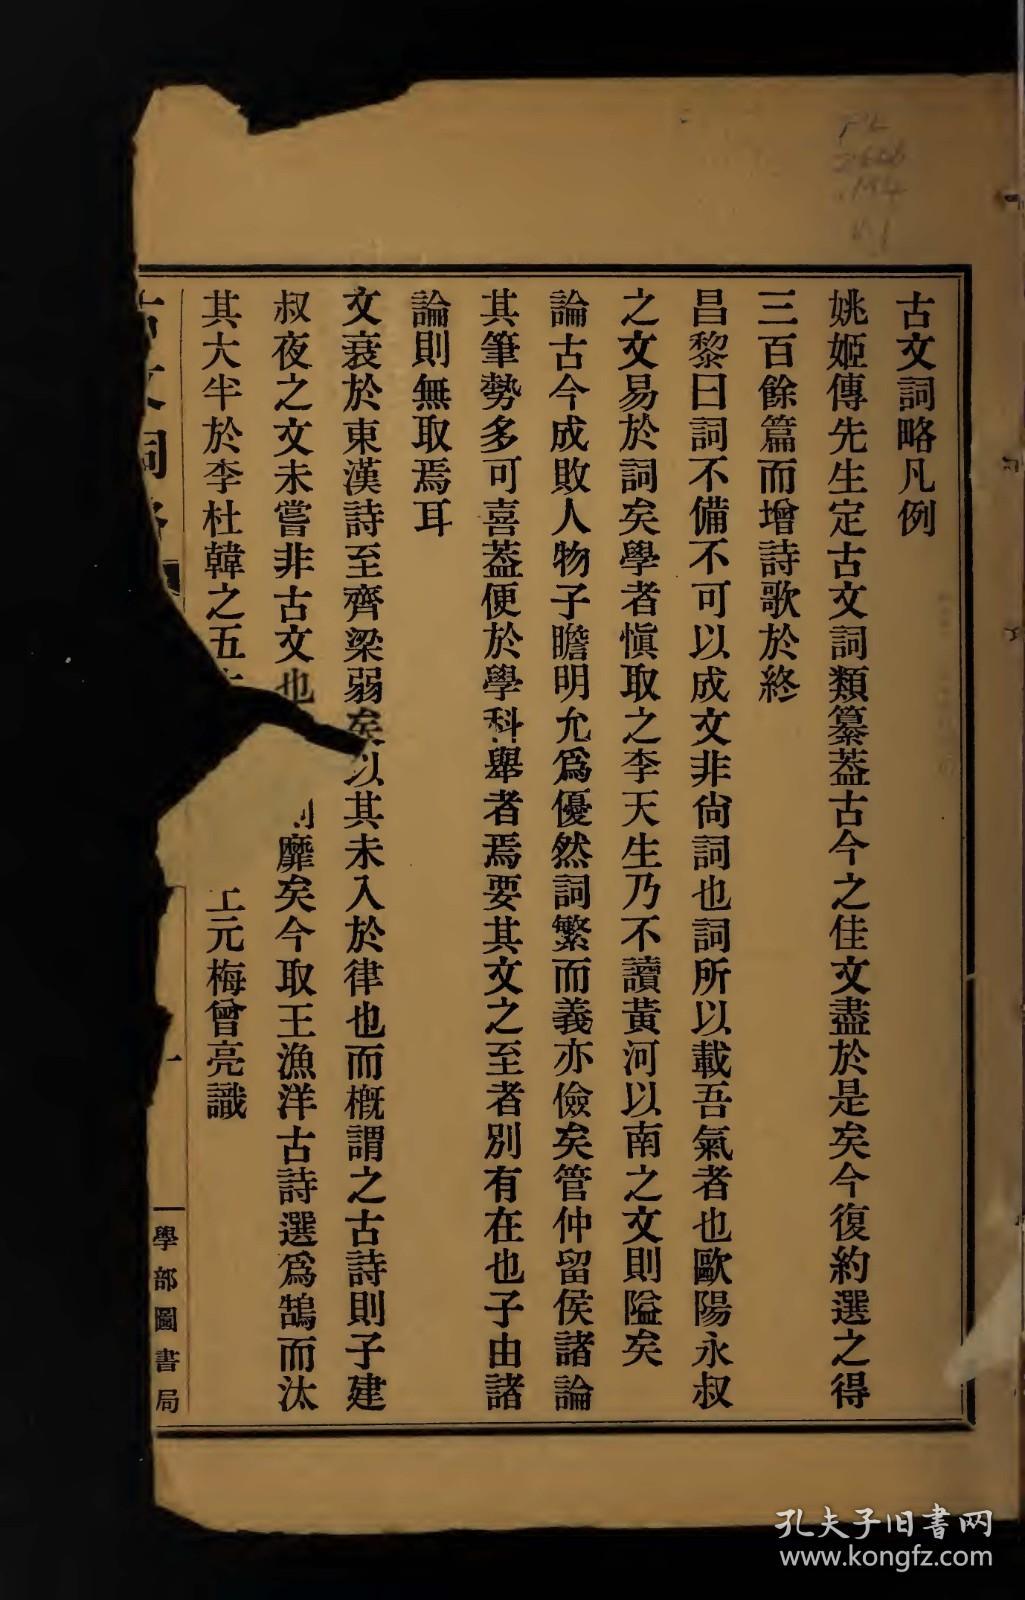 古文詞略凡例
姚姬傳先生定古文詞類纂葢古今之佳文盡於是矣今復約選之得
三百餘篇而增詩歌於終
昌黎曰詞不備不可以成文非尙詞也詞所以載吾氣者也歐陽永叔
之文易於詞矣學者愼取之李天生乃不讀黃河以南之文則隘矣
論古今成敗人物子瞻明允爲優然詞繁而義亦儉矣管仲留侯諸論
其筆勢多可喜葢便於學科舉者焉要其文之至者別有在也子由諸
論則無取焉耳
文衰於東漢詩至齊梁弱矣以其未入於律也而槪謂之古詩則子建
叔夜之文未嘗非古文也靡矣今取王漁洋古詩選爲鵠而汰
其大半於李杜韓之五
上元梅曾亮識
古文詞略
一
學部圖書局
PL
v.1
孔夫子旧書网
www.kongfz.com